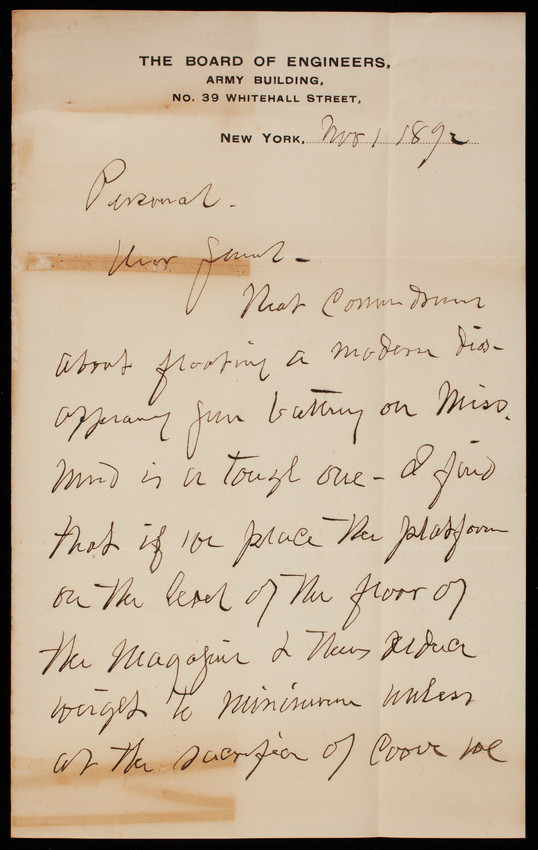 THE BOARD OF ENGINEERS,
ARMY BUILDING,
No. 39 WHITEHALL STREET,
NEW YORK, Nov 1 1892
Personal.
Dear
That Conundrum
about floating a modern dis-
appearing gun battery on Miss.
Mud is a tough one - I find
that if we place the platform
on the level of the floor of
the Magazine & thus reduce
weight to minimum unless
at the sacrifice of cover we